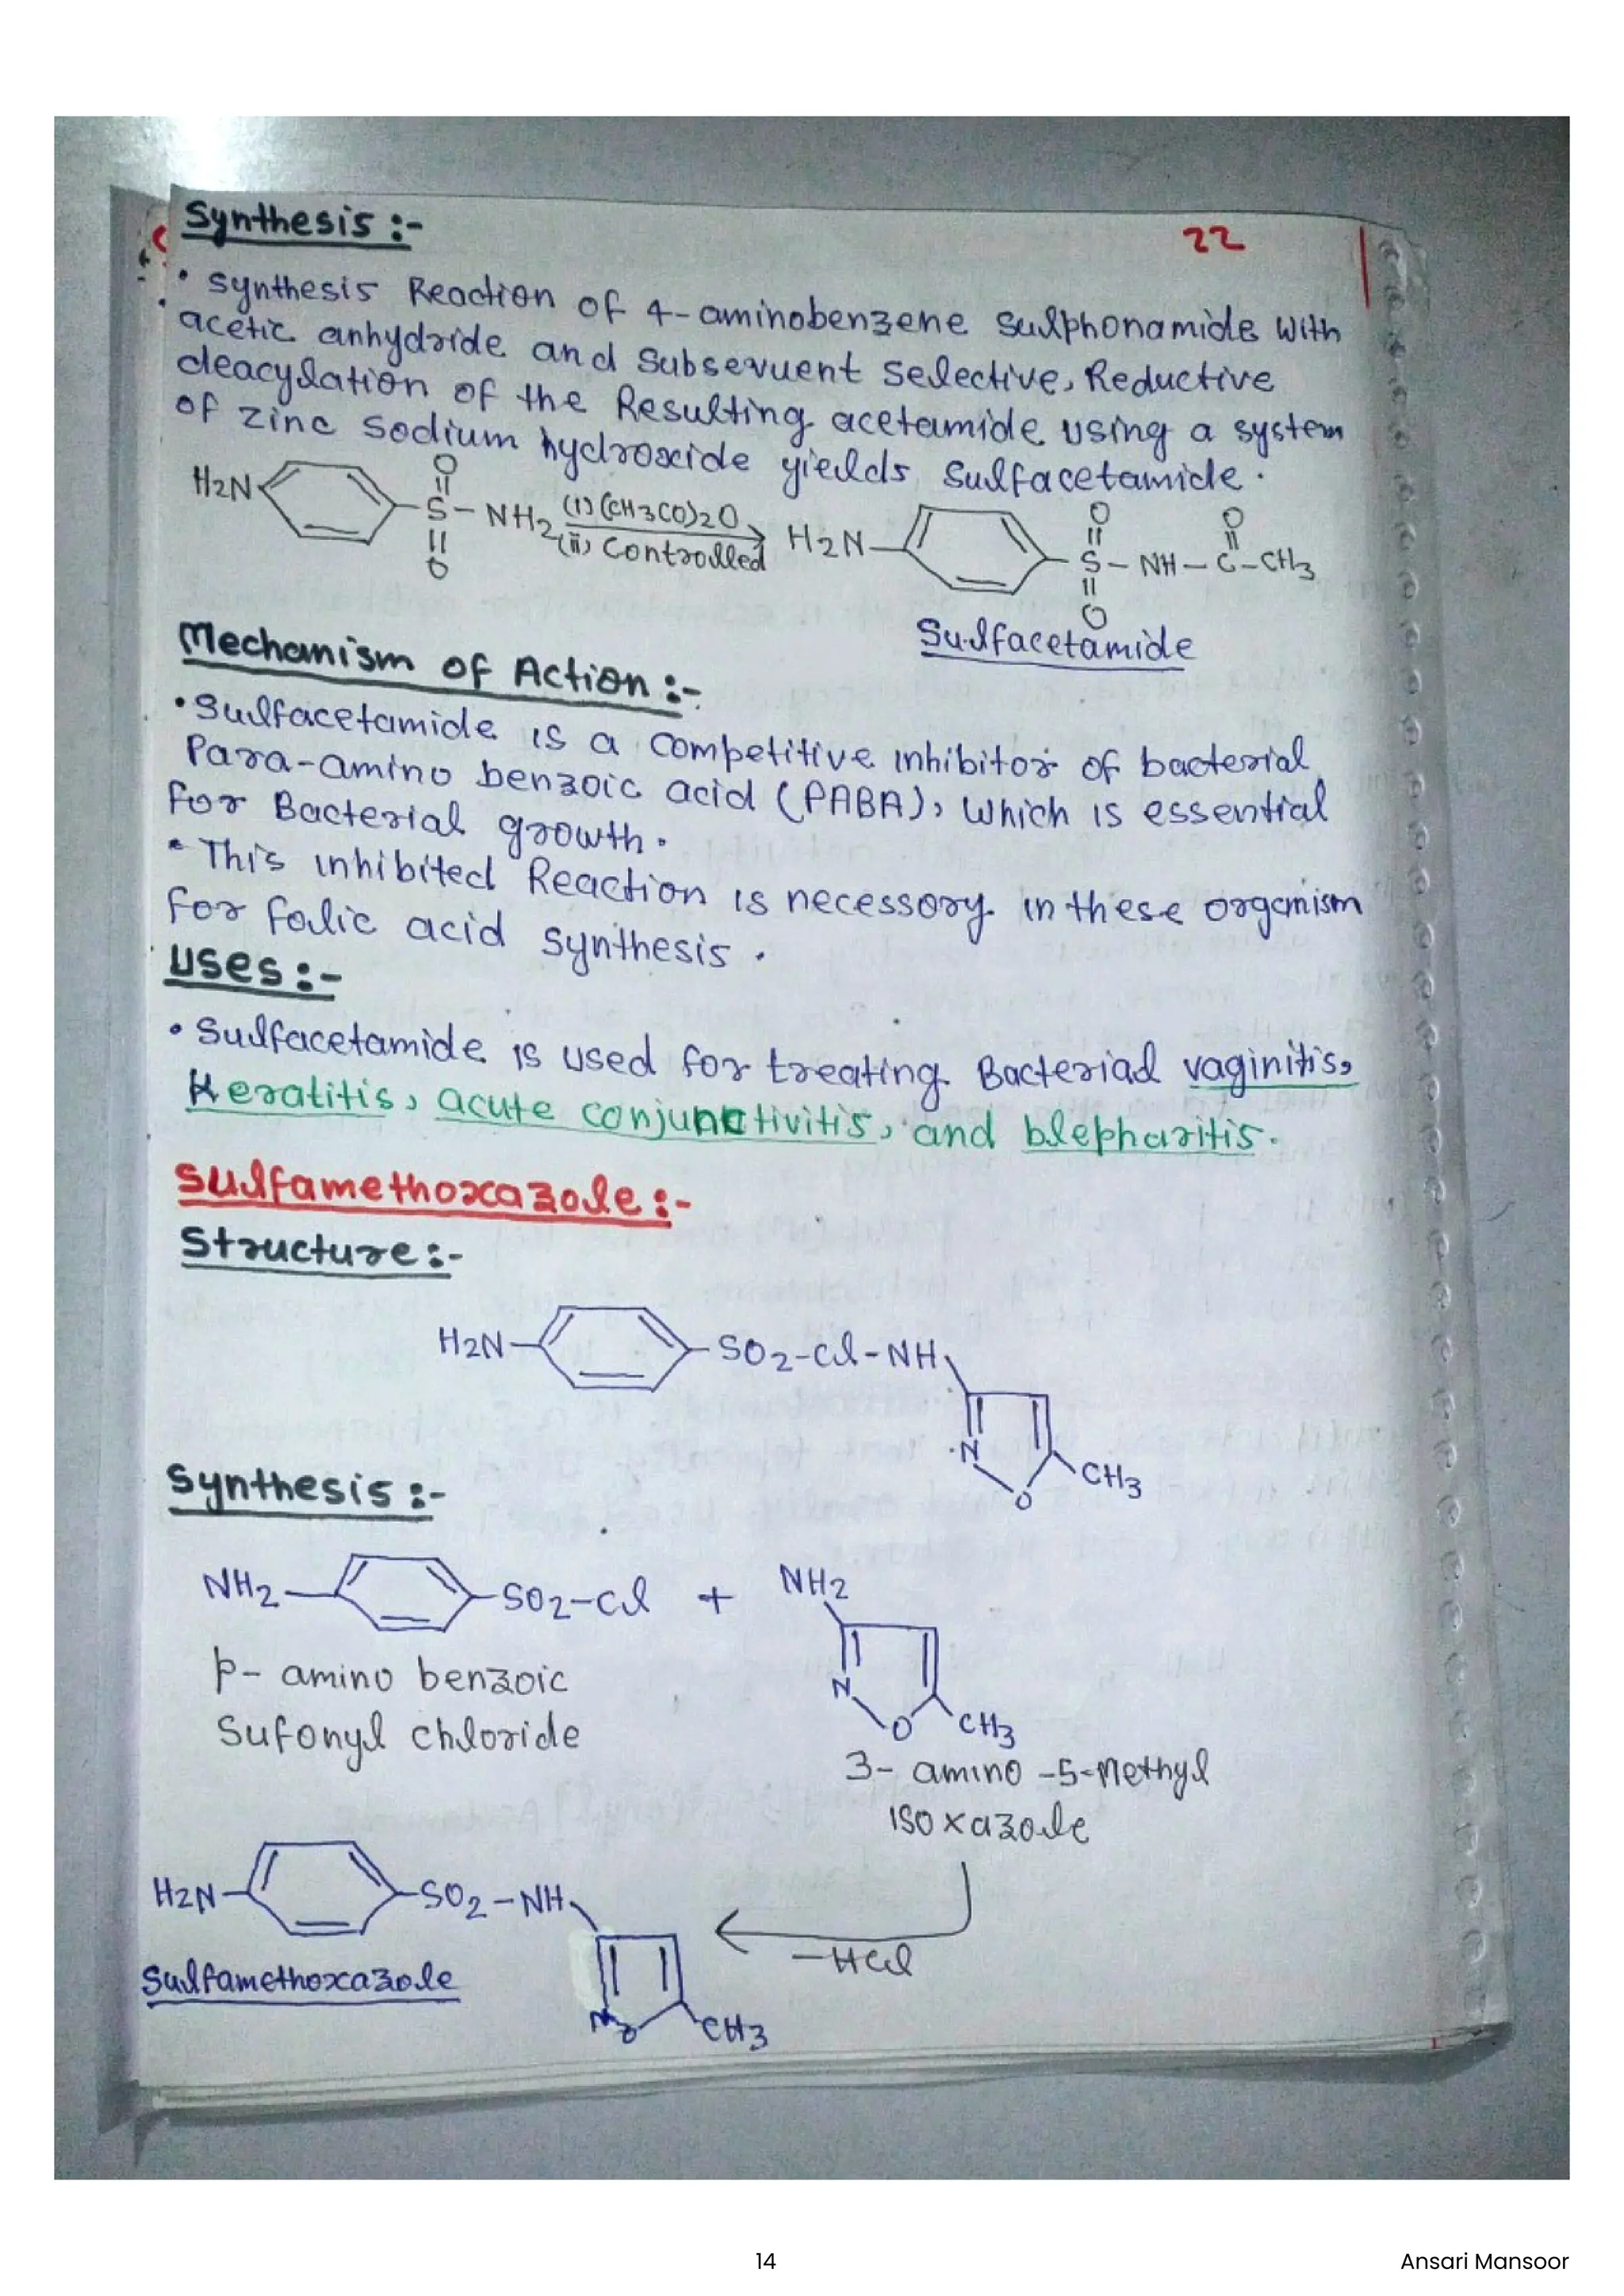 Synthesis :-
22
• Synthesis Reaction of 4-aminobenzene sulphonamide with
acetic anhydride and Subsevuent Selective, Reductive
deacylation of the Resulting acetamide using a system
of zinc sodium hydroxide yields sulfacetamide.
H2N S - NH2 (i) (CH3CO)2O H2N S - NH - C - CH3
O O O O O
(ii) Controlled
Sulfacetamide
Mechanism of Action :-
• Sulfacetamide is a competitive inhibitor of bacterial
Para-amino benzoic acid (PABA), which is essential
for Bacterial growth.
• This inhibited Reaction is necessory in these organism
for folic acid synthesis.
Uses :-
• Sulfacetamide is used for treating Bacterial vaginitis,
Keratitis, acute conjunctivitis, and blepharitis.
Sulfamethoxazole :-
Structure :-
H2N SO2-Cl-NH
N
O CH3
Synthesis :-
NH2 SO2-Cl + NH2
N
O CH3
p- amino benzoic
Sufonyl chloride
3- amino -5-Methyl
isoxazole
H2N SO2-NH
-HCl
Sulfamethoxazole
N O CH3
14
Ansari Mansoor